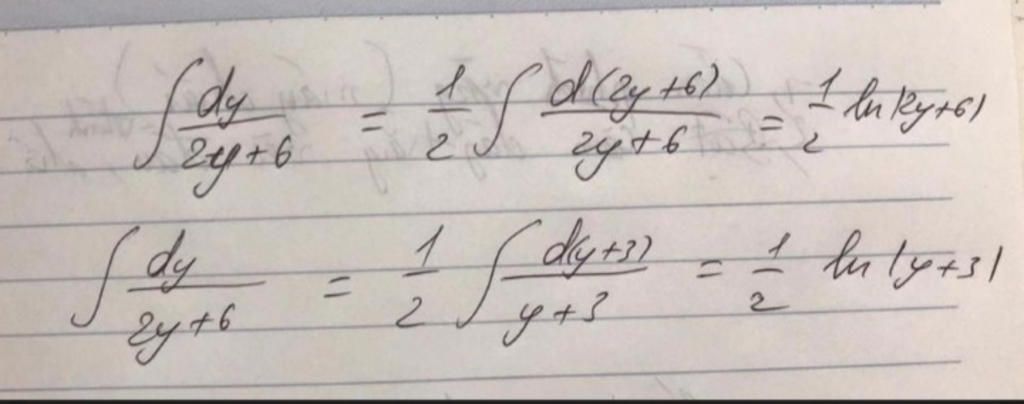 ∫ dy/(2y+6) = 1/2 ∫ d(2y+6)/(2y+6) = 1/2 ln|2y+6|
∫ dy/(2y+6) = 1/2 ∫ d(y+3)/(y+3) = 1/2 ln|y+3|